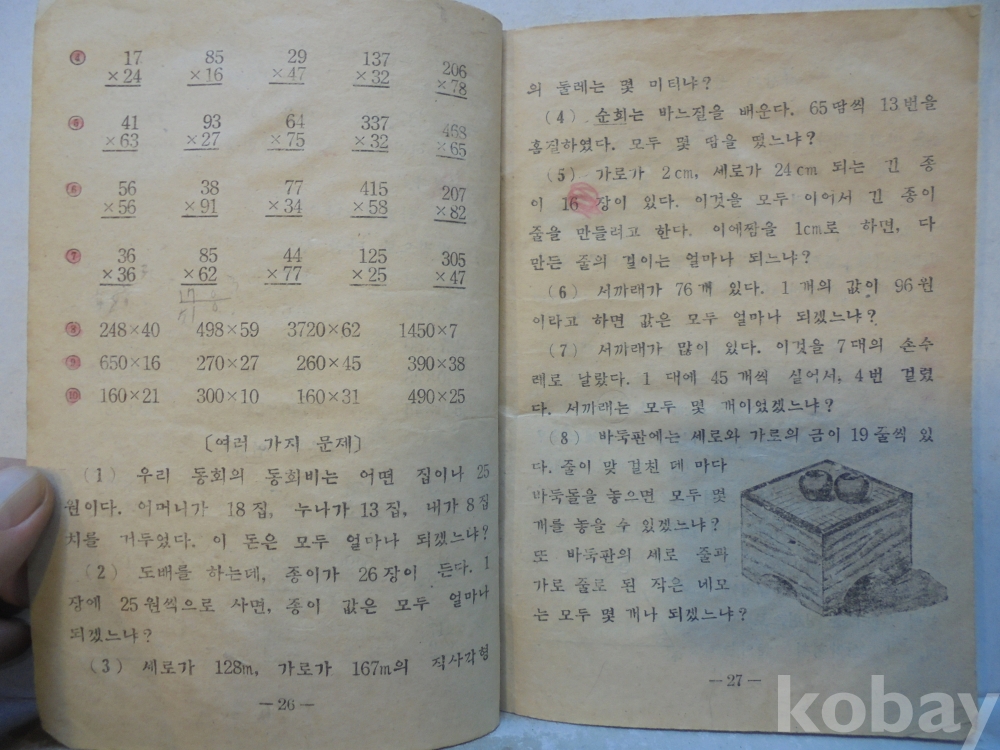 ④ 17 85 29 137 206
×24 ×16 ×47 ×32 ×78
⑤ 41 93 64 337 468
×63 ×27 ×75 ×32 ×65
⑥ 56 38 77 415 207
×56 ×91 ×34 ×58 ×82
⑦ 36 85 44 125 305
×36 ×62 ×77 ×25 ×47
⑧ 248×40 498×59 3720×62 1450×7
⑨ 650×16 270×27 260×45 390×38
⑩ 160×21 300×10 160×31 490×25
〔여러 가지 문제〕
(1) 우리 동회의 동회비는 어떤 집이나 25
원이다. 어머니가 18집, 누나가 13집, 내가 8집
치를 거두었다. 이 돈은 모두 얼마나 되겠느냐?
(2) 도배를 하는데, 종이가 26장이 든다. 1
장에 25원씩으로 사면, 종이 값은 모두 얼마나
되겠느냐?
(3) 세로가 128m, 가로가 167m의 직사각형
—26—
의 둘레는 몇 미터냐?
(4) 순희는 바느질을 배운다. 65땀씩 13번을
홈질하였다. 모두 몇 땀을 떴느냐?
(5) 가로가 2cm, 세로가 24cm 되는 긴 종
이 16장이 있다. 이것을 모두 이어서 긴 종이
줄을 만들려고 한다. 이에짬을 1cm로 하면, 다
만든 줄의 길이는 얼마나 되느냐?
(6) 서까래가 76개 있다. 1개의 값이 96원
이라고 하면 값은 모두 얼마나 되겠느냐?
(7) 서까래가 많이 있다. 이것을 7대의 손수
레로 날랐다. 1대에 45개씩 실어서, 4번 걸렸
다. 서까래는 모두 몇 개이었겠느냐?
(8) 바둑판에는 세로와 가로의 금이 19줄씩 있
다. 줄이 맞 걸친 데 마다
바둑돌을 놓으면 모두 몇
개를 놓을 수 있겠느냐?
또 바둑판의 세로 줄과
가로 줄로 된 작은 네모
는 모두 몇 개나 되겠느냐?
—27—
kobay